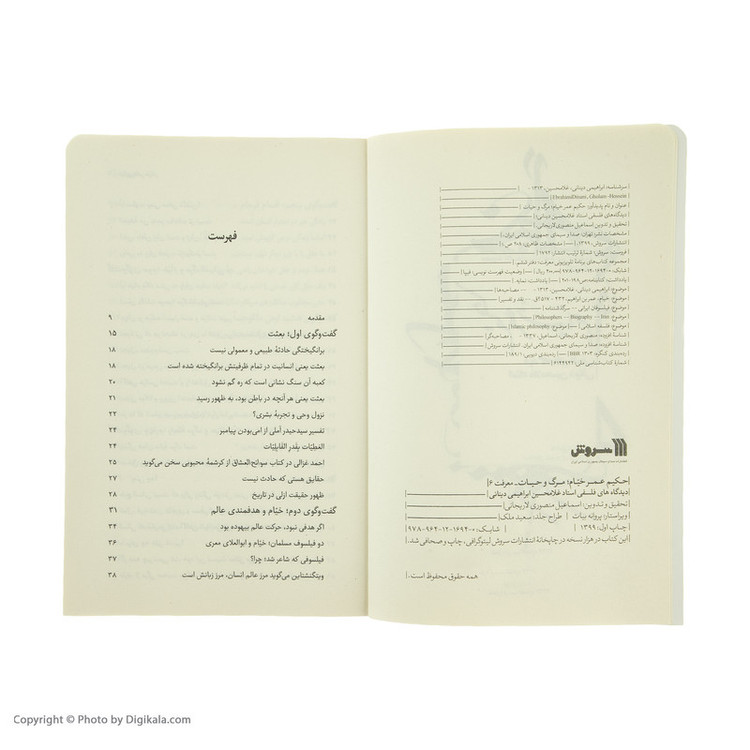 سرشناسه: ابراهیمی دینانی، غلامحسین، ۱۳۱۳ -
Ebrahimi Dinani, Gholam -Hossein
عنوان و نام پدیدآور: حکیم عمر خیام: مرگ و حیات
دیدگاه‌های فلسفی استاد غلامحسین ابراهیمی دینانی؛
تحقیق و تدوین اسماعیل منصوری لاریجانی.
مشخصات نشر: تهران: صدا و سیمای جمهوری اسلامی ایران،
انتشارات سروش، ۱۳۹۹. — مشخصات ظاهری: ۲۰۸ ص.
فروست: سروش؛ شماره ترتیب انتشار: ۱۸۹۶
مجموعه کتاب‌های برنامه تلویزیونی معرفت؛ دفتر ششم.
شابک: ۰-۱۶۹۴-۱۲-۹۶۴-۹۷۸ — وضعیت فهرست نویسی: فیپا
یادداشت: نمایه.
موضوع: ابراهیمی دینانی، غلامحسین، ۱۳۱۳ - — مصاحبه‌ها
موضوع: خیام، عمر بن ابراهیم، ۴۳۲ - ۵۱۷ق. -- نقد و تفسیر
موضوع: فیلسوفان ایرانی — سرگذشتنامه
Philosophers -- Biography -- Iran
موضوع: فلسفه اسلامی — موضوع: Islamic philosophy
شناسه افزوده: منصوری لاریجانی، اسماعیل، ۱۳۳۷ - مصاحبه‌گر
شناسه افزوده: صدا و سیمای جمهوری اسلامی ایران. انتشارات سروش
شماره کتابشناسی ملی: ۶۱۲۲۹۴۲
سروش
حکیم عمر خیّام؛ مرگ و حیات ـ معرفت ۶
دیدگاه های فلسفی استاد غلامحسین ابراهیمی دینانی
تحقیق و تدوین: اسماعیل منصوری لاریجانی
ویراستار: پروانه بیات | طراح جلد: سعید ملک
چاپ اول: ۱۳۹۹ | شابک: ۰-۱۶۹۴-۱۲-۹۶۴-۹۷۸
این کتاب در هزار نسخه در چاپخانهٔ انتشارات سروش لیتوگرافی، چاپ و صحافی شد.
همه حقوق محفوظ است.
فهرست
مقدمه ۹
گفت‌وگوی اول؛ بعثت ۱۵
برانگیختگی حادثهٔ طبیعی و معمولی نیست ۱۸
بعثت یعنی انسانیت در تمام ظرفیتش برانگیخته شده است ۱۸
کعبه آن سنگ نشانی است که ره گم نشود ۲۰
بعثت یعنی هر آنچه در باطن بود، به ظهور رسید ۲۱
نزول وحی و تجربهٔ بشری؟ ۲۲
تفسیر سیدحیدر آملی از امی‌بودن پیامبر ۲۴
العَطیّات بقَدرِ القابِلیّات ۲۴
احمد غزالی در کتاب سوانح‌العشاق از کرشمهٔ محبوبی سخن می‌گوید ۲۵
حقایق هستی که حادث نیست ۲۷
ظهور حقیقت ازلی در تاریخ ۲۸
گفت‌وگوی دوم؛ خیّام و هدفمندی عالم ۳۱
اگر هدفی نبود، حرکت عالم بیهوده بود ۳۴
دو فیلسوف مسلمان؛ خیّام و ابوالعلای معری ۳۶
فیلسوفی که شاعر شد؛ چرا؟ ۳۷
ویتگنشتاین می‌گوید مرز عالم انسان، مرز زبانش است ۳۸
Copyright © Photo by Digikala.com